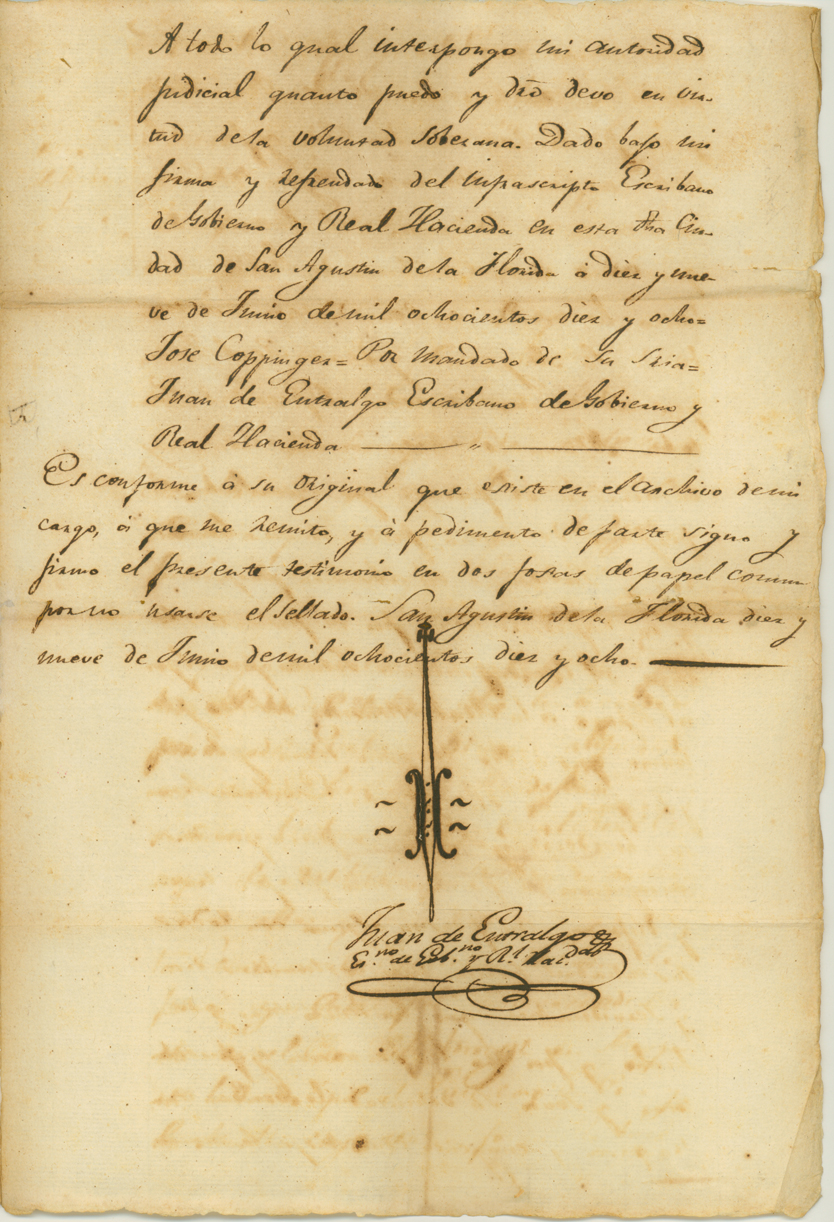 A todo lo qual interpongo mi autoridad
judicial quanto puedo y dro̅ devo en vir-
tud de la voluntad soberana. Dado bajo mi
firma y refrendado del infrascripto Escribano
de Gobierno y Real Hacienda en esta dha Ciu-
dad de San Agustin de la Florida à diez y nue-
ve de Junio de mil ochocientos diez y ocho=
Jose Coppinger= Por mandado de su sria=
Juan de Entralgo Escribano de Gobierno y
Real Hacienda
Es conforme à su original que existe en el archivo de mi
cargo, à que me remito, y à pedimento de parte signo y
firmo el presente testimonio en dos foxas de papel comun
por no usarse el sellado. San Agustin de la Florida diez y
nueve de Junio de mil ochocientos diez y ocho.
Juan de Entralgo
Es.no de Gob.no y R.l Hac.da